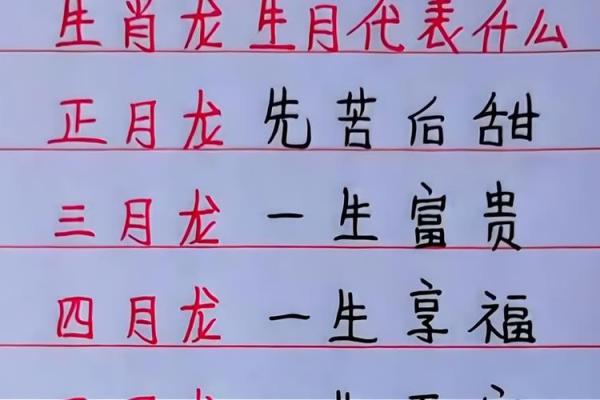 生肖龙 生月代表什么
正月龙 先苦后甜
三月龙 一生富贵
四月龙 一生享福